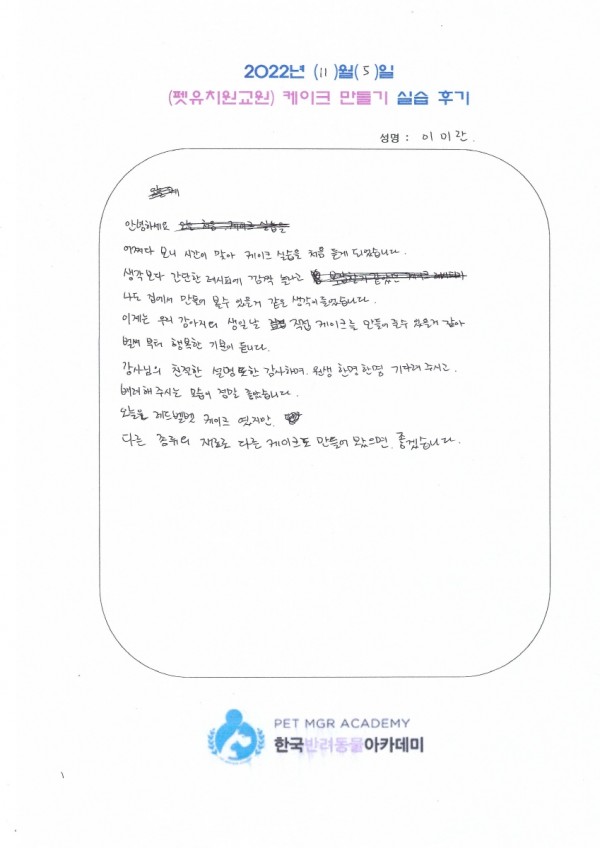 2022년 (11)월(5)일
(펫유치원교원) 케이크 만들기 실습 후기
성명 : 이미란.
안녕하세요
어쩌다 보니 시간이 맞아 케이크 실습을 처음 듣게 되었습니다.
생각보다 간단한 레시피에 깜짝 놀라고
나도 집에서 만들어 볼수 있을거 같은 생각이 들었습니다.
이제는 우리 강아지의 생일날 직접 케이크를 만들어 줄수 있을거 같아
벌써 부터 행복한 기분이 듭니다.
강사님의 친절한 설명 또한 감사하며, 원생 한명 한명 기다려 주시고,
배려해 주시는 모습이 정말 좋았습니다.
오늘은 레드벨벳 케이크 였지만,
다른 종류의 재료로 다른 케이크도 만들어 봤으면 좋겠습니다.
PET MGR ACADEMY
한국반려동물아카데미